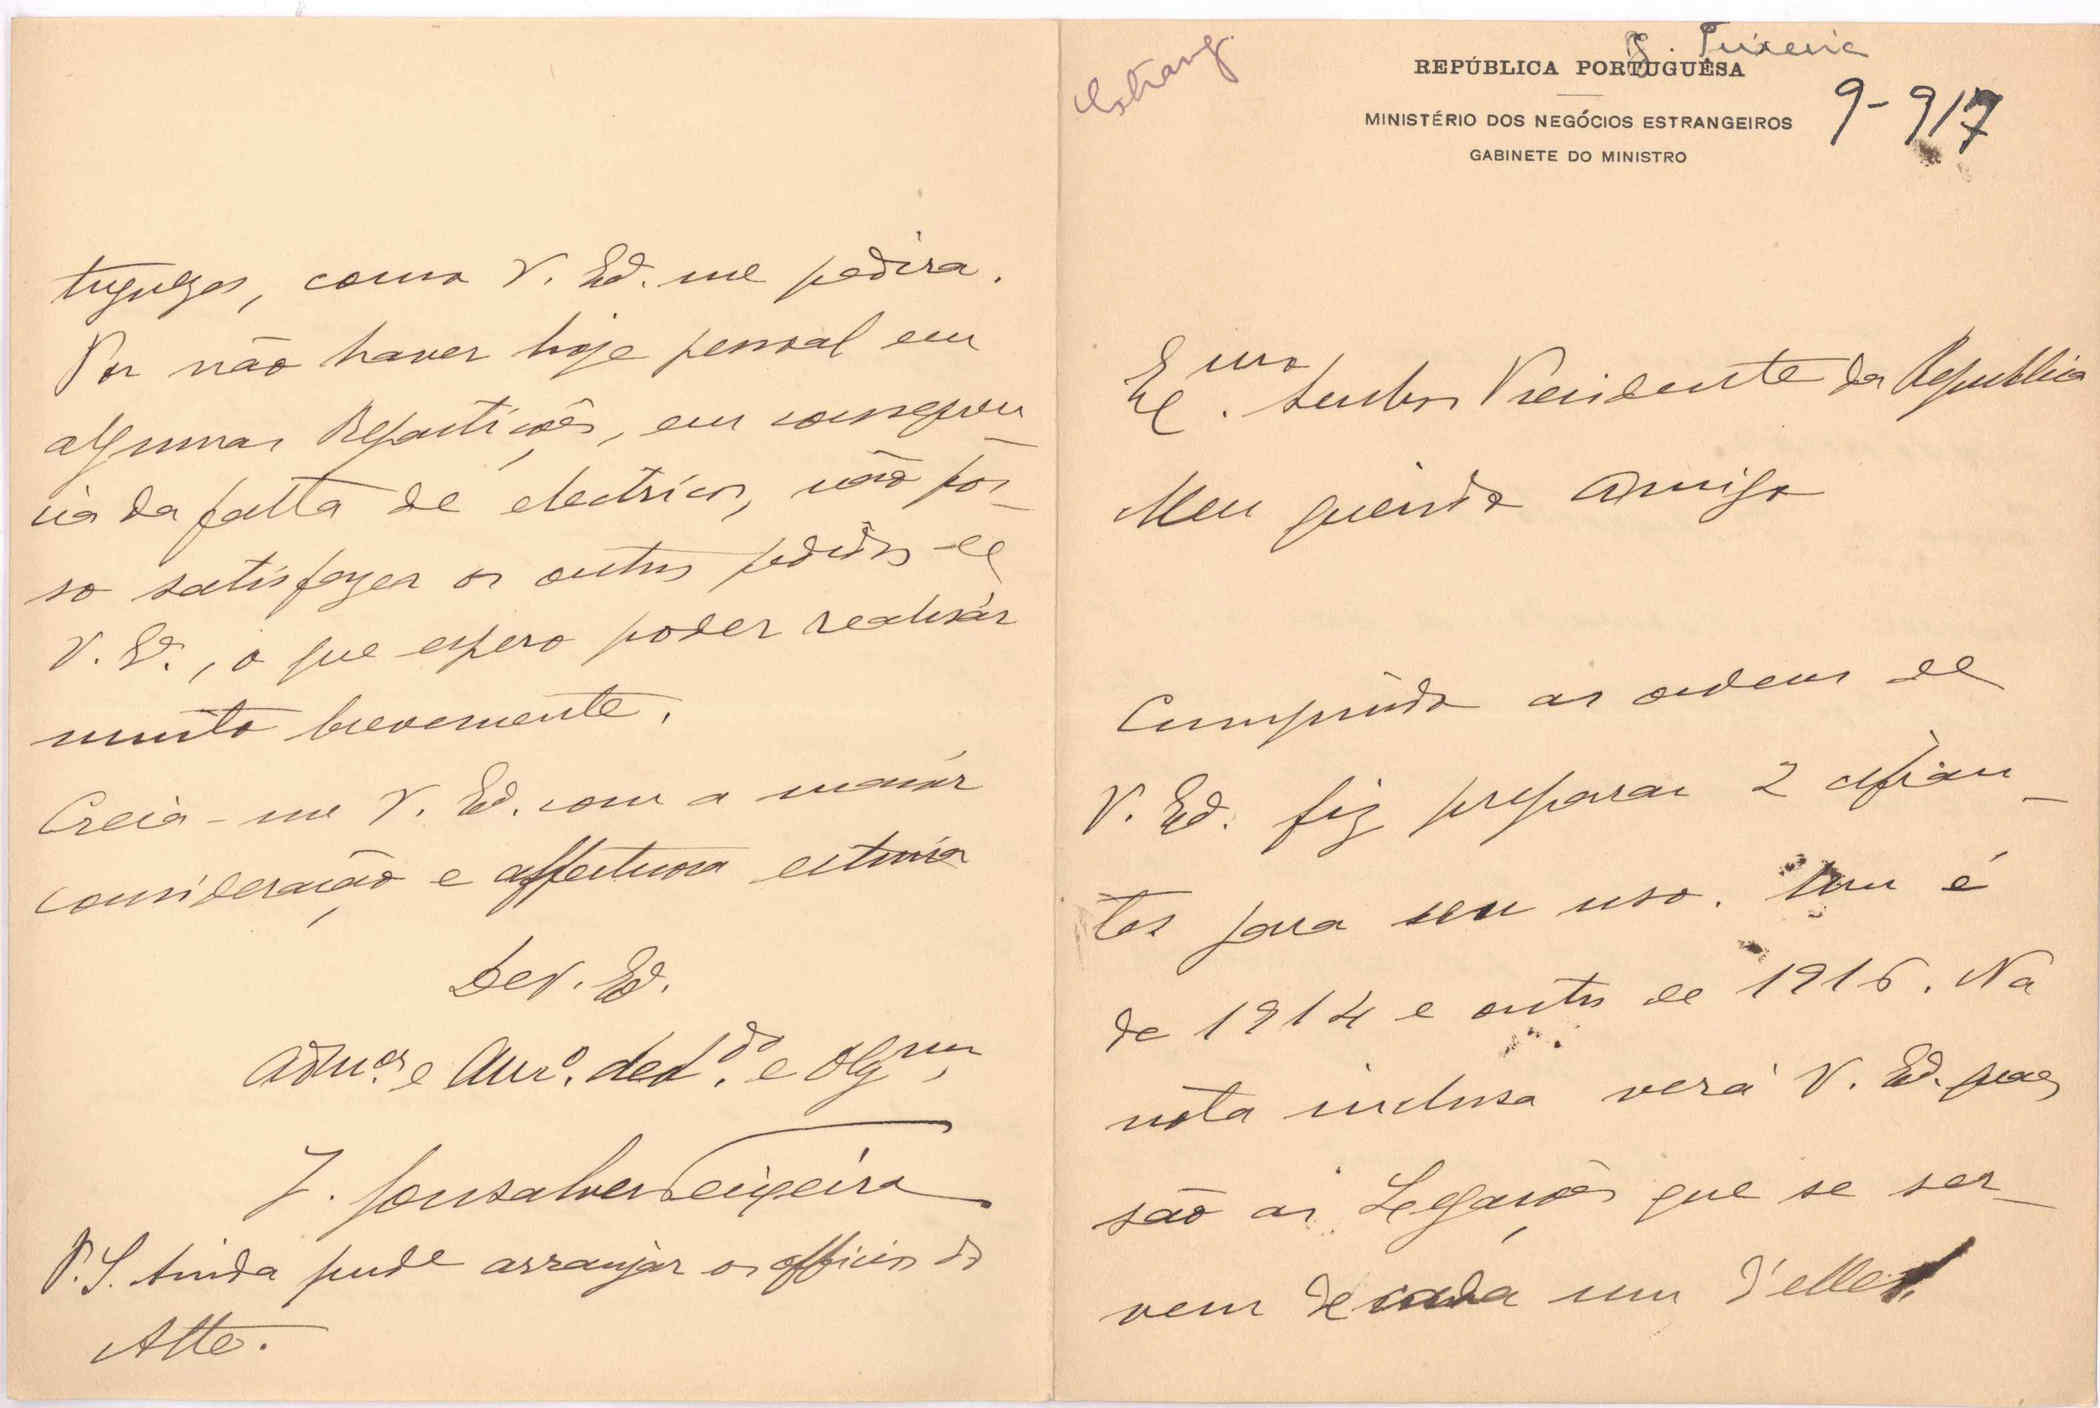 Estrang.
G. Teixeira
REPÚBLICA PORTUGUÊSA
9-917
MINISTÉRIO DOS NEGÓCIOS ESTRANGEIROS
GABINETE DO MINISTRO
Exmo. Senhor Presidente da Republica
Meu querido Amigo
Cumprindo as ordens de
V. Exª. fiz preparar 2 cifran-
tes para seu uso. Um é
de 1914 e outro de 1916. Na
nota inclusa verá V. Exª. quaes
são as Legações que se ser-
vem de cada um d'elles.
tuguezes, como V. Exª. me pedira.
Por não haver hoje pessoal em
algumas Repartições, em consequen-
cia da falta de electricos, não pos-
so satisfazer os outros pedidos de
V. Exª., o que espero poder realisar
muito brevemente.
Creia-me V. Exª. com a maior
consideração e affectuosa estima
De V. Exª.
Admor. e Amº. dedº. e Obgmo.
J. Gonsalves Teixeira
P.S. Ainda pude arranjar os officios do
Alte.